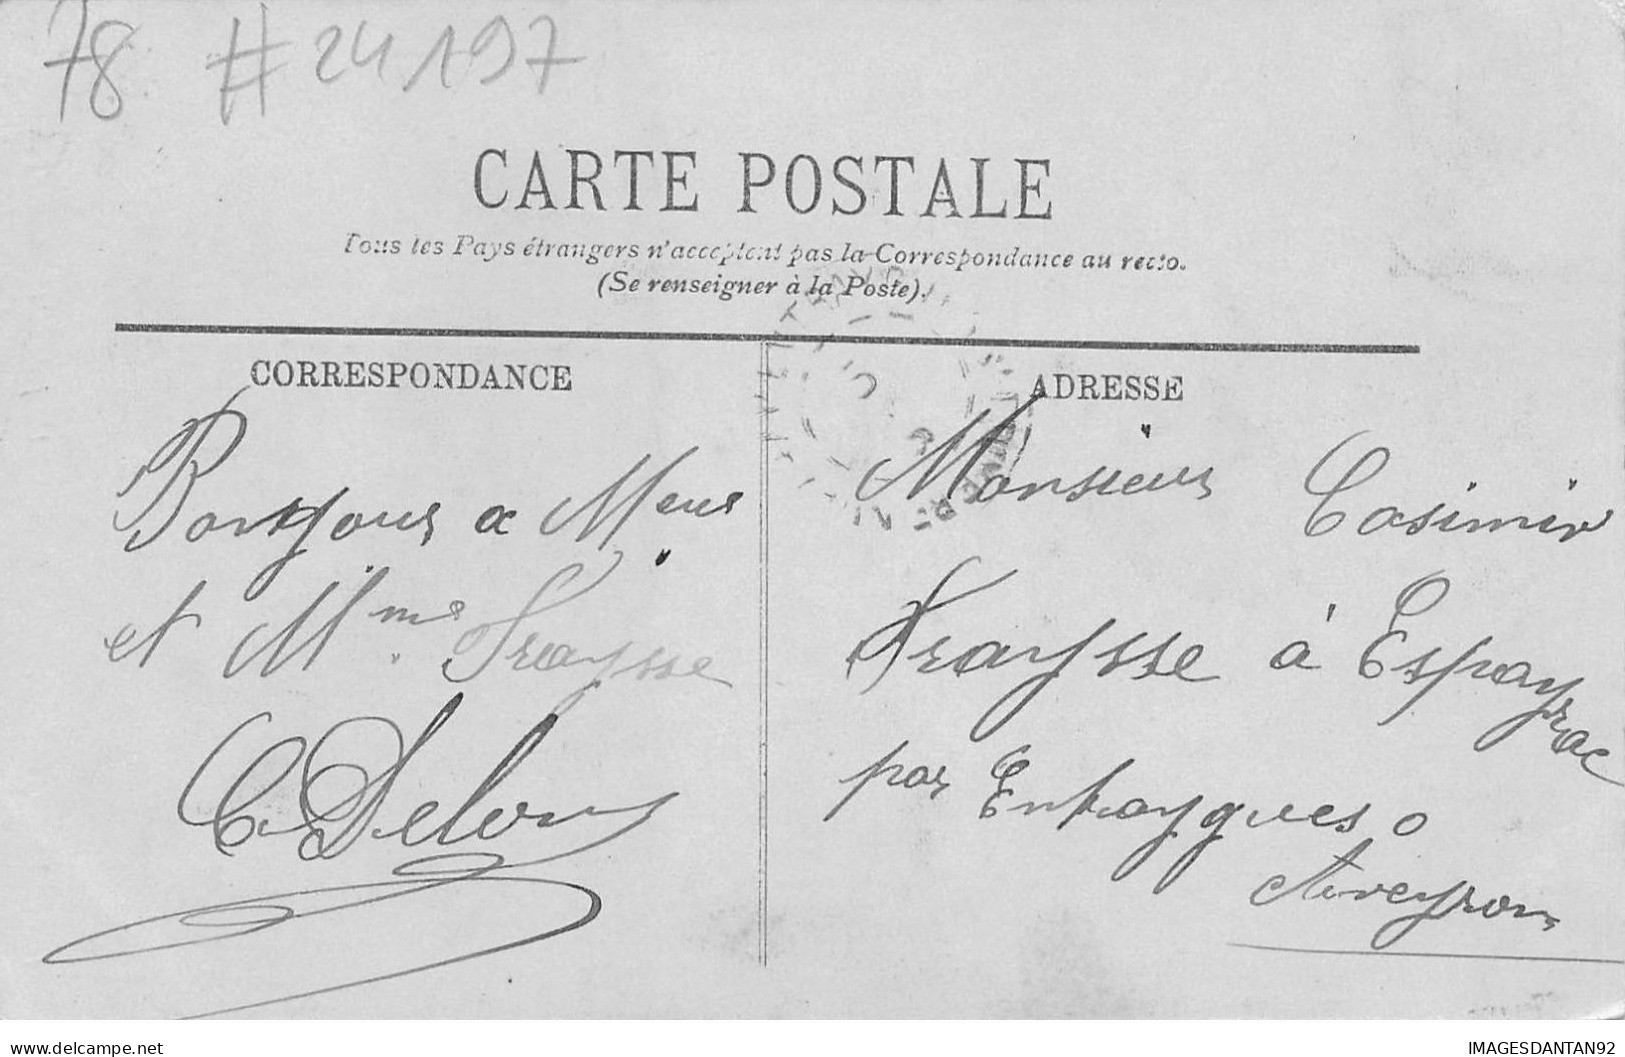 78 #24197
CARTE POSTALE
Tous les Pays étrangers n'acceptent pas la Correspondance au recto.
(Se renseigner à la Poste).
CORRESPONDANCE
Bonjour a Meur
et Mme. Fraysse
C. Delous
ADRESSE
Monsieur Casimir
Fraysse à Espayrac
par Entraygues
Aveyron
www.delcampe.net
IMAGESDANTAN92